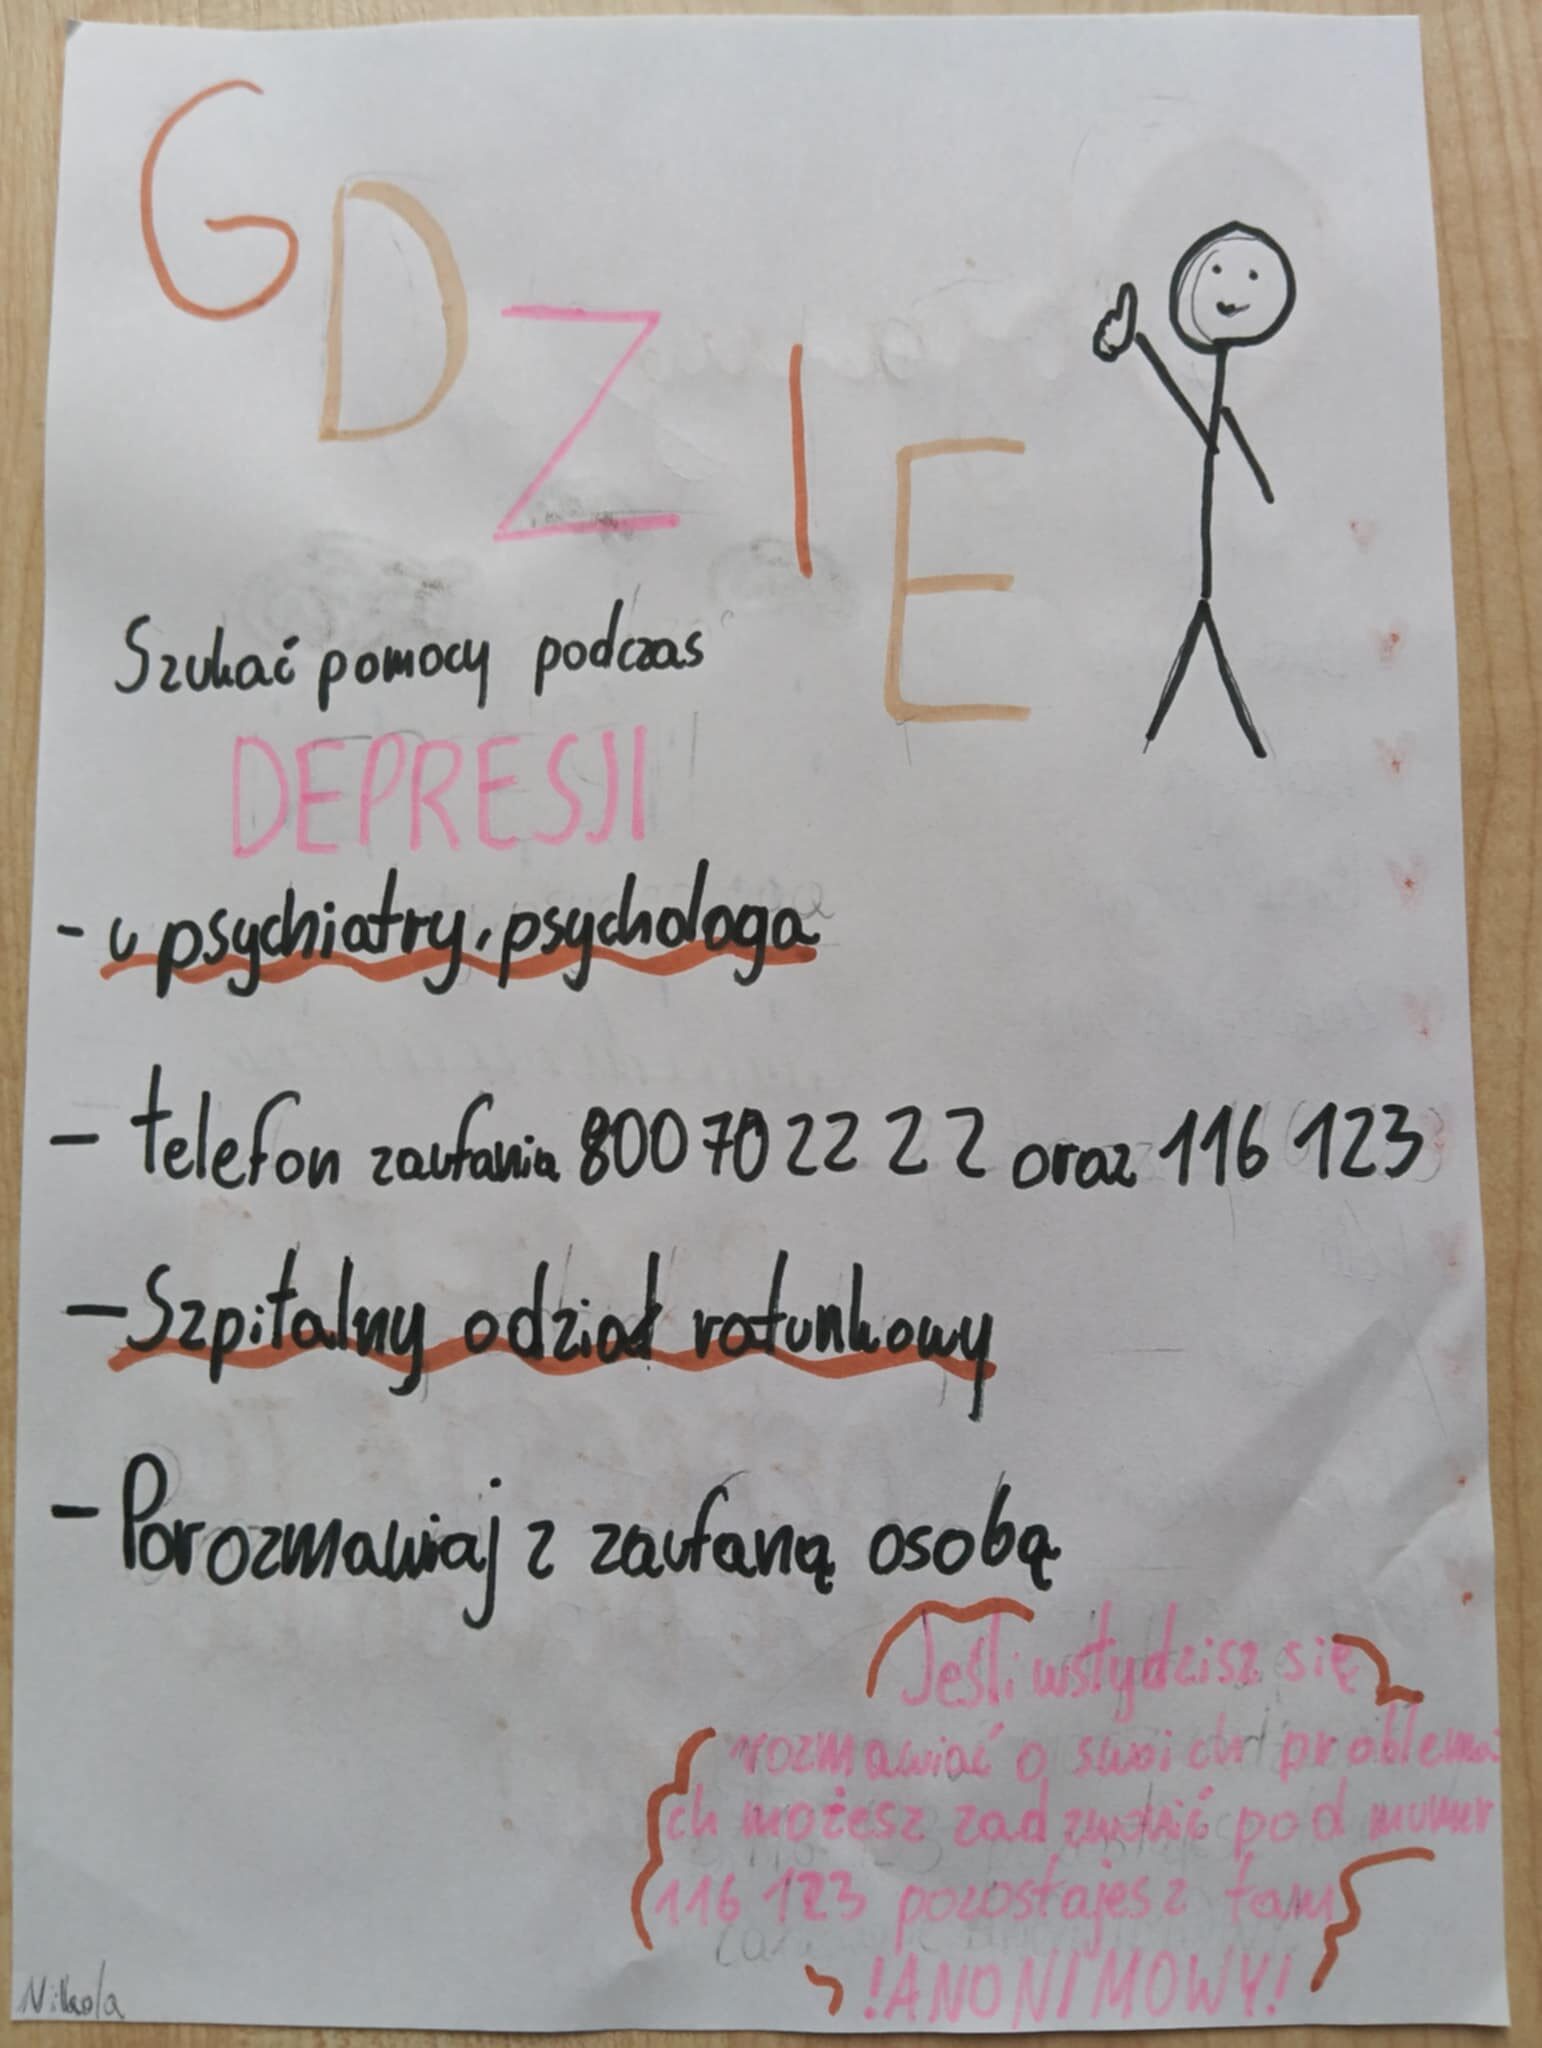 GDZIE
Szukać pomocy podczas
DEPRESJI
- u psychiatry, psychologa
- telefon zaufania 800 70 22 22 oraz 116 123
- Szpitalny odział ratunkowy
- Porozmawiaj z zaufaną osobą
Jeśli wstydzisz się
rozmawiać o swoich problema
ch możesz zadzwonić pod numer
116 123 pozostajesz tam
!ANONIMOWY!
Nikola